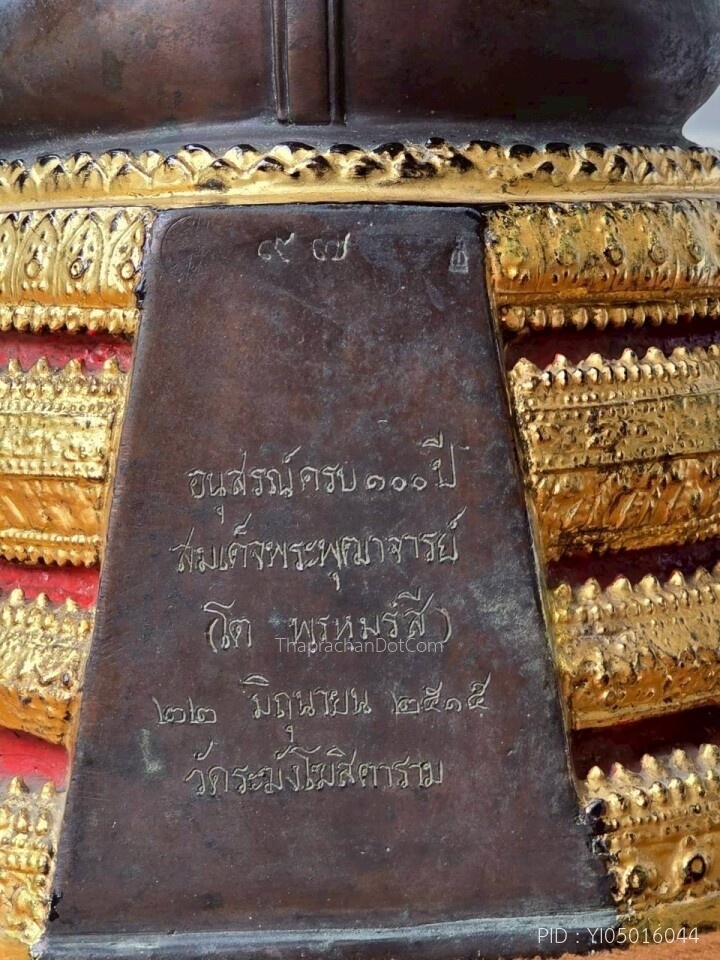 อนุสรณ์ครบ ๑๐๐ ปี
สมเด็จพระพุฒาจารย์
(โต พฺรหฺมรํสี)
ThaprachanDotCom
๒๒ มิถุนายน ๒๕๑๕
วัดระฆังโฆสิตาราม
PID : YI05016044